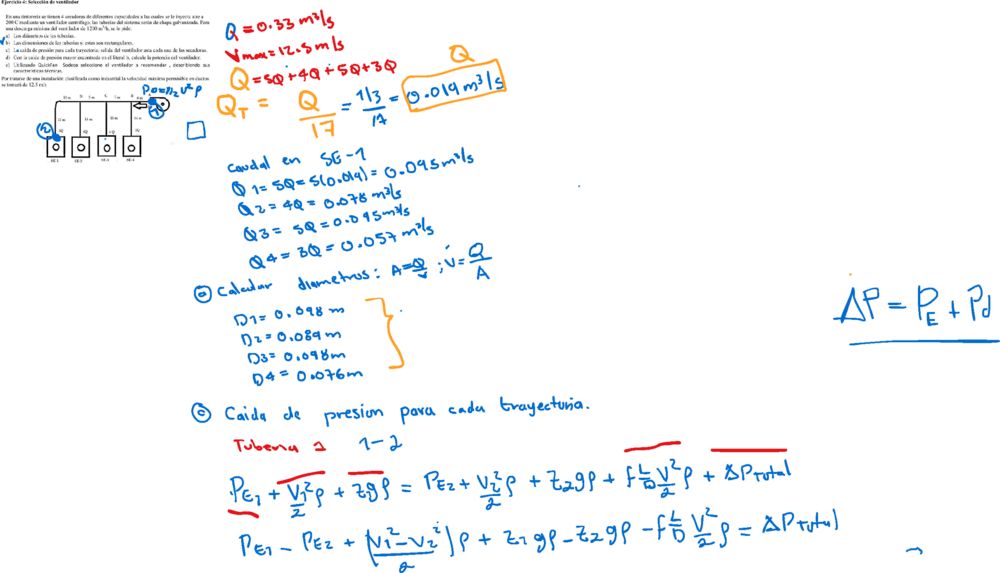 Ejercicio 4: Selección de ventilador
En una tintorería se tienen 4 secadoras de diferentes capacidades a las cuales se le inyecta aire a
200 C mediante un ventilador centrífugo, las tuberías del sistema serán de chapa galvanizada. Para
una descarga máxima del ventilador de 1200 m³/h, se le pide:
a) Los diámetros de las tuberías.
b) Las dimensiones de las tuberías si estas son rectangulares.
c) La caída de presión para cada trayectoria: salida del ventilador a cada una de las secadoras.
d) Con la caída de presión mayor encontrada en el literal b, calcule la potencia del ventilador.
e) Utilizando Quickfan Sodeca seleccione el ventilador a recomendar, describiendo sus
características técnicas.
Por tratarse de una instalación clasificada como industrial la velocidad máxima permisible en ductos
se tomará de 12.5 m/s
SE-1 SE-2 SE-3 SE-4
Q = 0.33 m³/s
Vmax = 12.5 m/s
Q = 5Q + 4Q + 5Q + 3Q
Q
QT = Q/17 = 1/3/17 = 0.019 m³/s
caudal en SE-1
Q1 = 5Q = 5(0.019) = 0.095 m³/s
Q2 = 4Q = 0.078 m³/s
Q3 = 5Q = 0.095 m³/s
Q4 = 3Q = 0.057 m³/s
a Calcular diametros: A = Q/V ; V = Q/A
D1 = 0.098 m
D2 = 0.089 m
D3 = 0.098 m
D4 = 0.076 m
ΔP = PE + Pd
c Caida de presion para cada trayectoria.
Tuberia 1 1-2
PE1 + V1²/2 ρ + Z1gρ = PE2 + V2²/2 ρ + Z2gρ + f L/D V²/2 ρ + ΔPTotal
PE1 - PE2 + (V1² - V2²)/2 ρ + Z1gρ - Z2gρ - f L/D V²/2 ρ = ΔPTotal